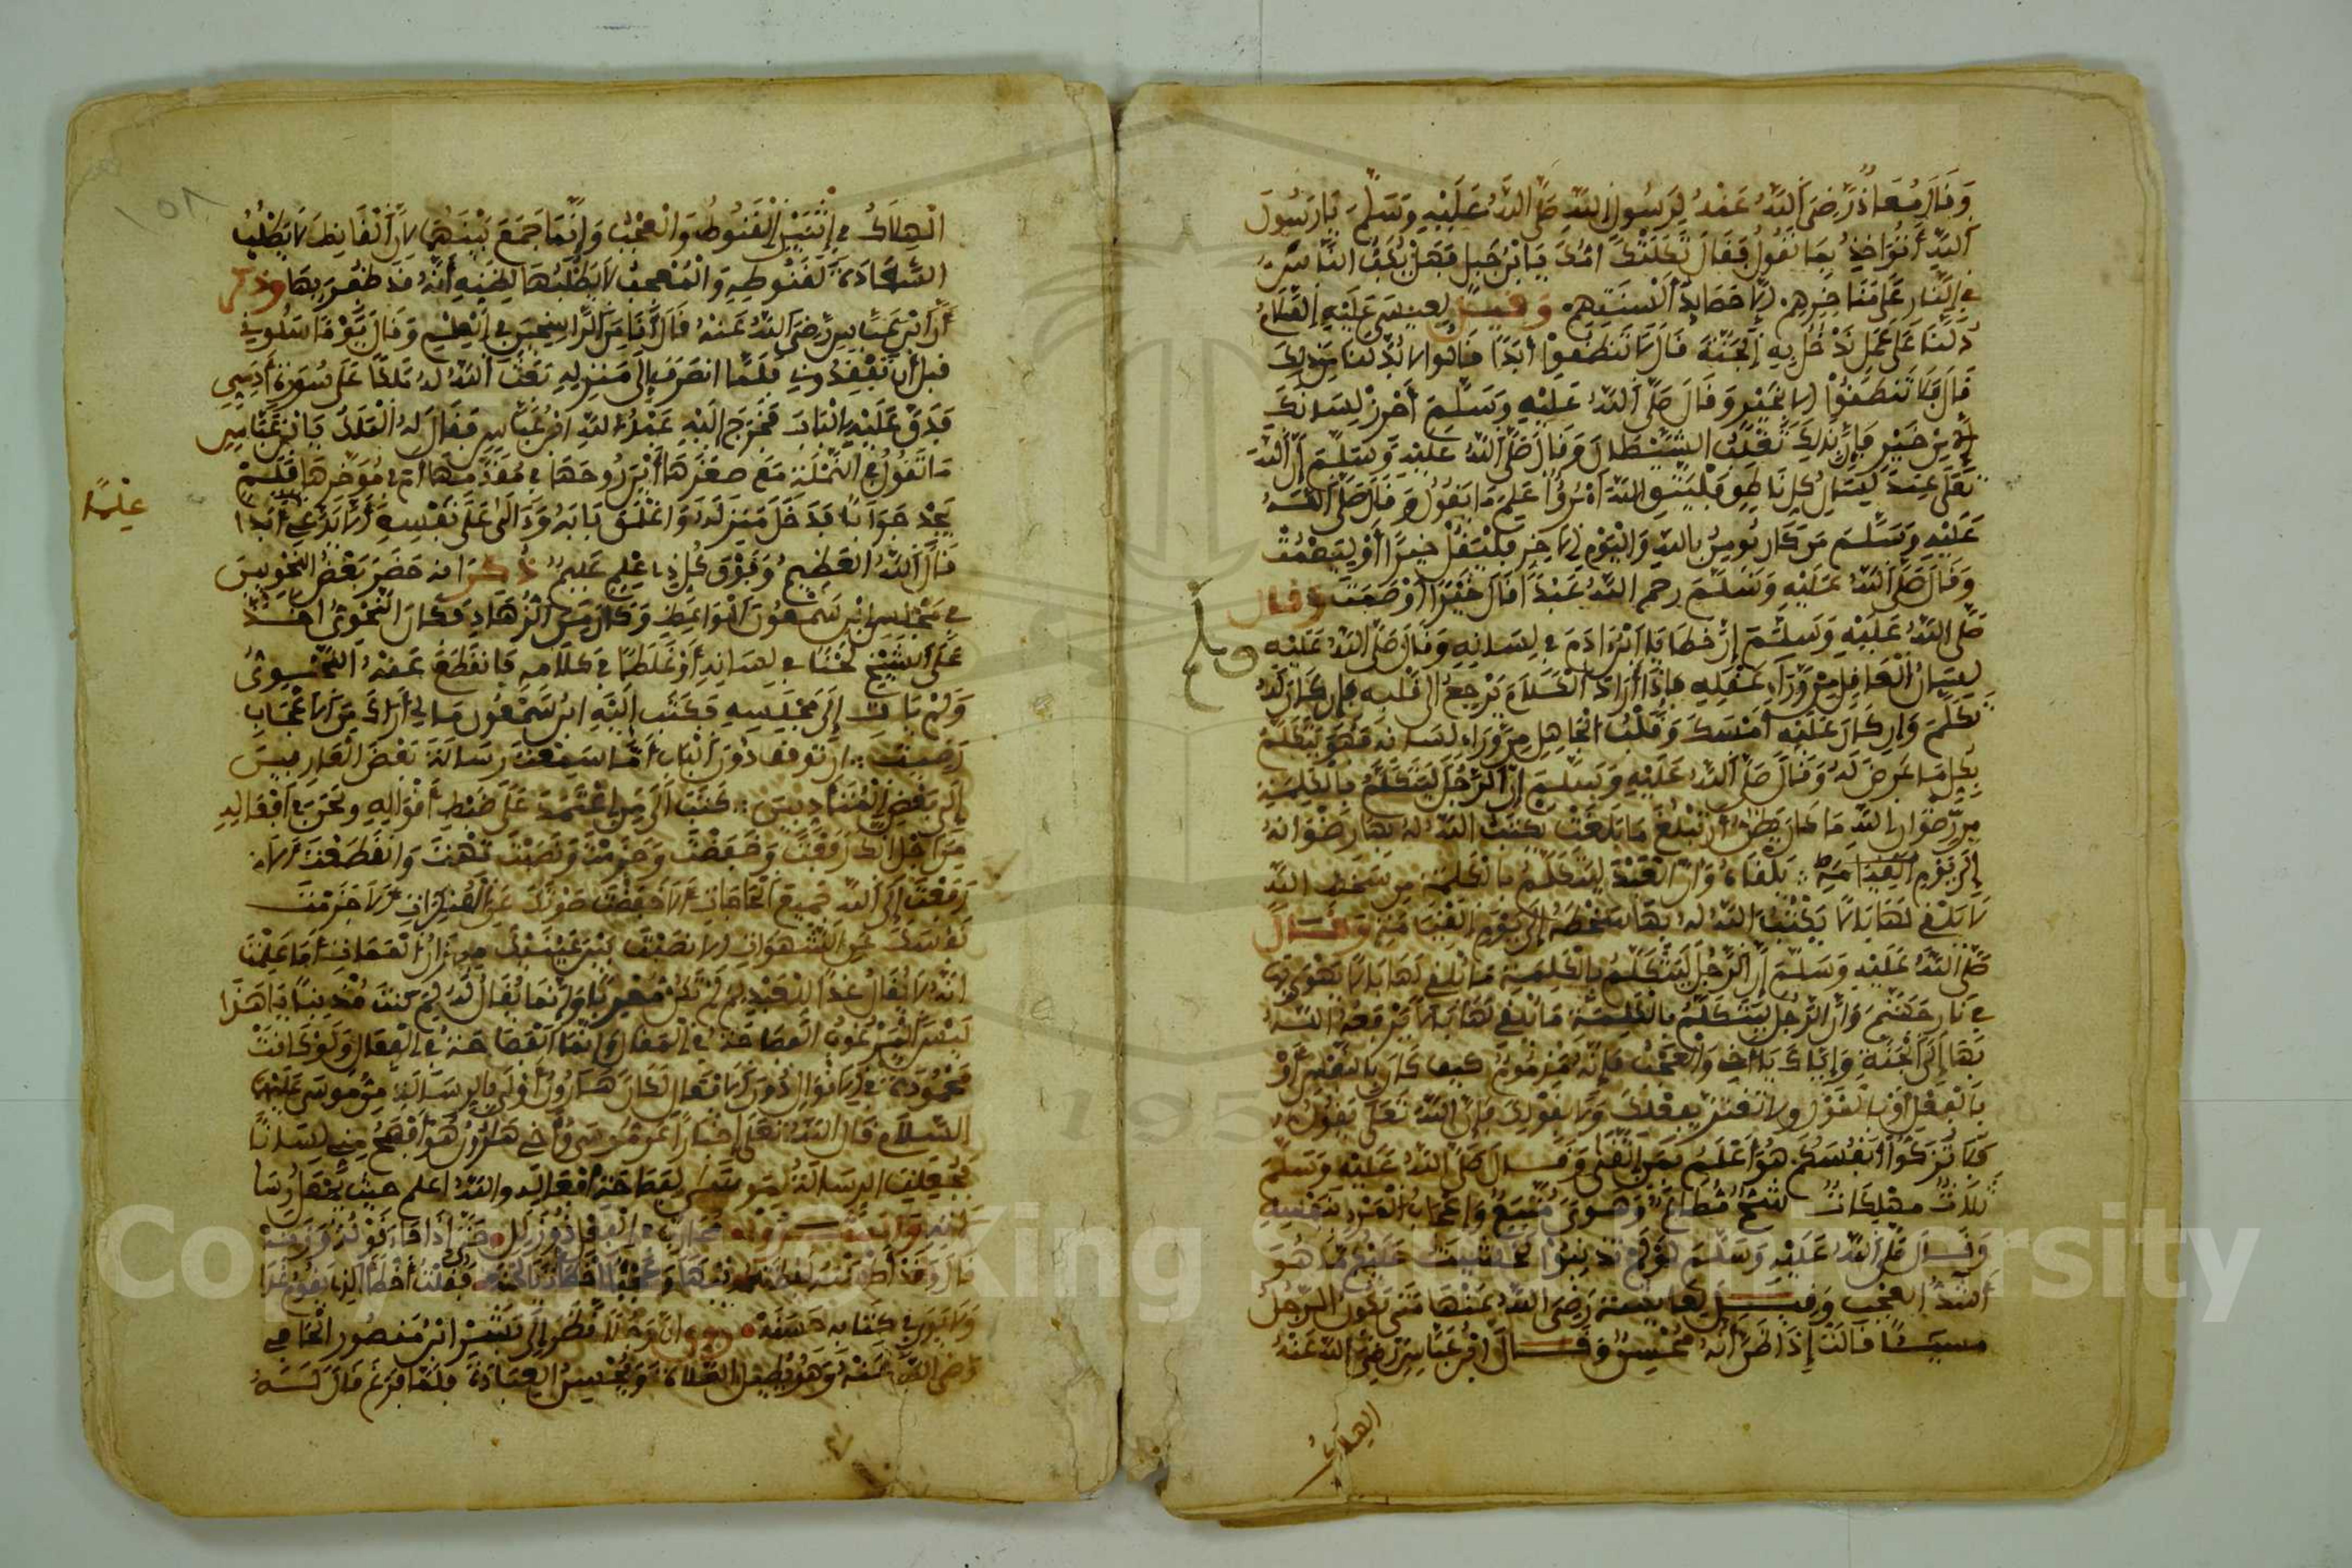 وَقَالَ مُعَاذٌ رَضِيَ اللَّهُ عَنْهُ لِرَسُولِ اللَّهِ صَلَّى اللَّهُ عَلَيْهِ وَسَلَّمَ يَا رَسُولَ
اللَّهِ أَنُؤَاخَذُ بِمَا نَقُولُ فَقَالَ ثَكَلَتْكَ أُمُّكَ يَا ابْنَ جَبَلٍ فَهَلْ يَكُبُّ النَّاسَ
فِي النَّارِ عَلَى مَنَاخِرِهِمْ إِلَّا حَصَائِدُ أَلْسِنَتِهِمْ وَقِيلَ لِعِيسَى عَلَيْهِ السَّلَامُ
دُلَّنَا عَلَى عَمَلٍ نَدْخُلُ بِهِ الْجَنَّةَ قَالَ لَا تَنْطِقُوا أَبَدًا قَالُوا لَا بُدَّ لَنَا مِنْ ذَلِكَ
قَالَ فَلَا تَنْطِقُوا إِلَّا بِخَيْرٍ وَقَالَ صَلَّى اللَّهُ عَلَيْهِ وَسَلَّمَ أَخْزِنْ لِسَانَكَ
إِلَّا مِنْ خَيْرٍ فَإِنَّ بِذَلِكَ تَغْلِبُ الشَّيْطَانَ وَقَالَ صَلَّى اللَّهُ عَلَيْهِ وَسَلَّمَ إِنَّ اللَّهَ
تَعَلَى عِنْدَ لِسَانِ كُلِّ نَاطِقٍ فَلْيَتَّقِ اللَّهَ امْرُؤٌ عَلِمَ مَا يَقُولُ وَقَالَ صَلَّى اللَّهُ
عَلَيْهِ وَسَلَّمَ مَنْ كَانَ يُومِنُ بِاللَّهِ وَالْيَوْمِ الْآخِرِ فَلْيَقُلْ خَيْرًا أَوْ لِيَصْمُتْ
وَقَالَ صَلَّى اللَّهُ عَلَيْهِ وَسَلَّمَ رحم اللَّهُ عَبْدًا قَالَ خَيْرًا أَوْ صَمَتَ وَقَالَ
صَلَّى اللَّهُ عَلَيْهِ وَسَلَّمَ إِنَّ خَطَايَا ابْنِ ءَادَمَ فِي لِسَانِهِ وَقَالَ صَلَّى اللَّهُ عَلَيْهِ
لِسَانُ الْعَاقِلِ مِنْ وَرَاءِ عَقْلِهِ فَإِذَا أَرَادَ الْكَلَامَ يَرْجِعُ إِلَى قَلْبِهِ فَإِنْ كَانَ لَهُ
تَكَلَّمَ وَإِنْ كَانَ عَلَيْهِ أَمْسَكَ وَقَلْبُ الْجَاهِلِ مِنْ وَرَاءِ لِسَانِهِ فَهُوَ يَتَكَلَّمُ
بِكُلِّ مَا عَرَضَ لَهُ وَقَالَ صَلَّى اللَّهُ عَلَيْهِ وَسَلَّمَ إِنَّ الرَّجُلَ لَيَتَكَلَّمُ بِالْكَلِمَةِ
مِنْ رِضْوَانِ اللَّهِ مَا كَانَ يَظُنُّ أَنْ تَبْلُغَ مَا بَلَغَتْ يَكْتُبُ اللَّهُ لَهُ بِهَا رِضْوَانَهُ
إِلَى يَوْمِ الْقِيَامَةِ يَلْقَاهُ وَإِنَّ الْعَبْدَ لَيَتَكَلَّمُ بِالْكَلِمَةِ مِنْ سَخَطِ اللَّهِ
لَا يُلْقِي لَهَا بَالًا يَكْتُبُ اللَّهُ لَهُ بِهَا سَخَطَهُ إِلَى يَوْمِ الْقِيَامَةِ وَقَالَ
صَلَّى اللَّهُ عَلَيْهِ وَسَلَّمَ إِنَّ الرَّجُلَ لَيَتَكَلَّمُ بِالْكَلِمَةِ مَا يُلْقِي لَهَا بَالًا يَهْوِي بِهَا
فِي نَارِ جَهَنَّمَ وَإِنَّ الرَّجُلَ لَيَتَكَلَّمُ بِالْكَلِمَةِ مَا يُلْقِي لَهَا بَالًا يَرْفَعُهُ اللَّهُ
بِهَا إِلَى الْجَنَّةِ وَإِيَّاكَ يَا أَخِي وَالْعُجْبَ فَإِنَّهُ مَذْمُومٌ كَيْفَ كَانَ بِالنَّفْسِ أَوْ
بِالْفِعْلِ أَوْ بِالْقَوْلِ وَلَا تَغْتَرَّ بِفِعْلِكَ وَلَا بِقَوْلِكَ فَإِنَّ اللَّهَ تَعَلَى يَقُولُ
فَلَا تُزَكُّوا أَنْفُسَكُمْ هُوَ أَعْلَمُ بِمَنِ اتَّقَى وَقَالَ صَلَّى اللَّهُ عَلَيْهِ وَسَلَّمَ
ثَلَاثٌ مُهْلِكَاتٌ شُحٌّ مُطَاعٌ وَهَوًى مُتَّبَعٌ وَإِعْجَابُ الْمَرْءِ بِنَفْسِهِ
وَقَالَ صَلَّى اللَّهُ عَلَيْهِ وَسَلَّمَ لَوْ لَمْ تُذْنِبُوا لَخَشِيتُ عَلَيْكُمْ مَا هُوَ
أَشَدُّ الْعُجْبَ وَقِيلَ لِعَائِشَةَ رَضِيَ اللَّهُ عَنْهَا مَتَى يَكُونُ الرَّجُلُ
مُسِيئًا قَالَتْ إِذَا ظَنَّ أَنَّهُ مُحْسِنٌ وَقَالَ ابْنُ عَبَّاسٍ رَضِيَ اللَّهُ عَنْهُ
الهلاك
الْهِلَاكُ فِي اثْنَيْنِ الْقُنُوطُ وَالْعُجْبُ وَإِنَّمَا جَمَعَ بَيْنَهُمَا لِأَنَّ الْقَانِطَ لَا يَطْلُبُ
السَّعَادَةَ لِقُنُوطِهِ وَالْمُعْجَبُ لَا يَطْلُبُهَا لِظَنِّهِ أَنَّهُ قَدْ ظَفِرَ بِهَا وَذُكِرَ
أَنَّ ابْنَ عَبَّاسٍ رَضِيَ اللَّهُ عَنْهُ قَالَ أَنَا مِنَ الرَّاسِخِينَ فِي الْعِلْمِ وَقَالَ يَوْمًا سَلُونِي
قَبْلَ أَنْ تَفْقِدُونِي فَلَمَّا انْصَرَفَ إِلَى مَنْزِلِهِ بَعَثَ اللَّهُ لَهُ مَلَكًا عَلَى صُورَةِ آدَمِيٍّ
فَدَقَّ عَلَيْهِ الْبَابَ فَخَرَجَ إِلَيْهِ عَبْدُ اللَّهِ ابْنُ عَبَّاسٍ فَقَالَ لَهُ الْمَلَكُ يَا ابْنَ عَبَّاسٍ
مَا تَقُولُ فِي النَّمْلَةِ مَعَ صِغَرِهَا أَيْنَ رُوحُهَا فِي مُقَدَّمِهَا أَمْ فِي مُؤَخَّرِهَا فَلَمْ
يَجِدْ جَوَابًا فَدَخَلَ مَنْزِلَهُ وَأَغْلَقَ بَابَهُ وَءَالَى عَلَى نَفْسِهِ أَلَّا يَدَّعِي أَبَدًا
عِلْمًا
قَالَ اللَّهُ الْعَظِيمُ وَفَوْقَ كُلِّ ذِي عِلْمٍ عَلِيمٌ ذُكِرَ أَنَّهُ حَضَرَ بَعْضُ النَّحْوِيِّينَ
فِي مَجْلِسِ ابْنِ سَمْعُونَ الْوَاعِظِ وَكَانَ مِنَ الزُّهَّادِ فَكَانَ النَّحْوِيُّ أَخَذَ
عَلَى الشَّيْخِ لَحْنًا فِي لِسَانِهِ أَوْ غَلَطًا فِي كَلَامِهِ فَانْقَطَعَ عَنْهُ النَّحْوِيُّ
وَلَمْ يَأْتِ إِلَى مَجْلِسِهِ فَكَتَبَ إِلَيْهِ ابْنُ سَمْعُونَ مَا لِي أَرَاكَ مِنَ الْإِعْجَابِ
رَضِيتَ أَنْ تَقِفَ دُونَ الْبَابِ أَمَا سَمِعْتَ رِسَالَةَ بَعْضِ الْعَارِفِينَ
إِلَى بَعْضِ الْمُتَأَدِّبِينَ كَتَبَ إِلَى مَنِ اعْتَمَدَ عَلَى ضَبْطِ أَقْوَالِهِ وَلَحَنَ فِي أَفْعَالِهِ
مِنْ أَجْلِ أَنَّكَ رَفَعْتَ وَخَفَضْتَ وَجَزَمْتَ وَنَصَبْتَ تِهْتَ وَانْقَطَعْتَ أَلَا
رَفَعْتَ إِلَى اللَّهِ جَمِيعَ الْحَاجَاتِ أَلَا خَفَضْتَ صَوْتَكَ عَنِ الْمُنْكَرَاتِ أَلَا جَزَمْتَ
نَفْسَكَ عَنِ الشَّهَوَاتِ أَلَا نَصَبْتَ بَيْنَ عَيْنَيْكَ الْمَمَاتَ أَمَا عَلِمْتَ
أَنَّهُ لَا يُقَالُ غَدًا لِلْعَبْدِ لِمَ لَمْ تَكُنْ مُعْرِبًا وَإِنَّمَا يُقَالُ لَهُ لِمَ كُنْتَ مُذْنِبًا يَا هَذَا
لَيْسَ الْمَرْغُوبُ الْفَصَاحَةَ فِي الْمَقَالِ وَإِنَّمَا الْفَصَاحَةُ فِي الْفِعَالِ وَلَوْ كَانَتْ
مَحْمُودَةً فِي الْأَقْوَالِ دُونَ الْأَفْعَالِ لَكَانَ هَارُونُ أَوْلَى بِالرِّسَالَةِ مِنْ مُوسَى عَلَيْهِمَا
السَّلَامُ قَالَ اللَّهُ تَعَلَى إِخْبَارًا عَنْ مُوسَى وَأَخِي هَارُونُ هُوَ أَفْصَحُ مِنِّي لِسَانًا
فَجُعِلَتِ الرِّسَالَةُ لِمُوسَى لِفَصَاحَةِ أَفْعَالِهِ وَاللَّهُ أَعْلَمُ حَيْثُ يَجْعَلُ رِسَا
قَالَ وَقَدْ
وَلَا يَرَى فِي كِتَابِهِ حَسَنَةً رُوِيَ أَنَّ رَجُلًا نَظَرَ إِلَى بِشْرِ ابْنِ مَنْصُورٍ الْحَافِي
رَضِيَ اللَّهُ عَنْهُ وَهُوَ يُطِيلُ الصَّلَاةَ وَيُحْسِنُ الْعِبَادَةَ فَلَمَّا فَرَغَ قَالَ لَهُ
Copy King Saud University
195